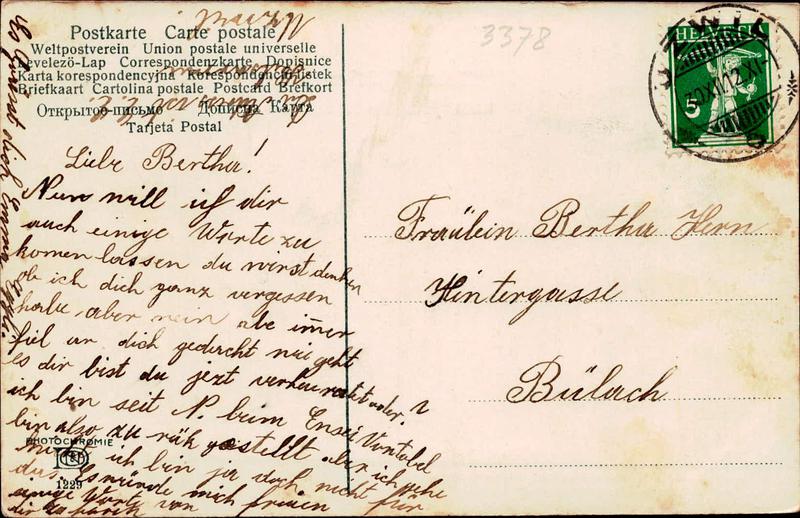 Postkarte Carte postale
Weltpostverein Union postale universelle
Levelezö-Lap Correspondenzkarte Dopisnice
Karta korespondencyjna Korespondenční-listek
Briefkaart Cartolina postale Postcard Brefkort
Открытое-письмо Дописна Карта
Tarjeta Postal
Liebe Bertha!
Nun will ich dir
auch einige Worte zu
komen lassen du wirst denken
ob ich dich ganz vergessen
habe, aber nein abe immer
fiel an dich gedacht wie geht
es dir bist du jezt verheuratet oder?
ich bin seit N. beim
bin also zu gestellt aber ich gehe
ich bin ja doch nicht für
das mich freien
einige Worte von
dir
Es Grüsst dich Emma
PHOTOCHROMIE
1229
3378
HELVETIA
5
UZWIL
30.XII.12.XI
Fräulein Bertha Hern
Hintergasse
Bülach